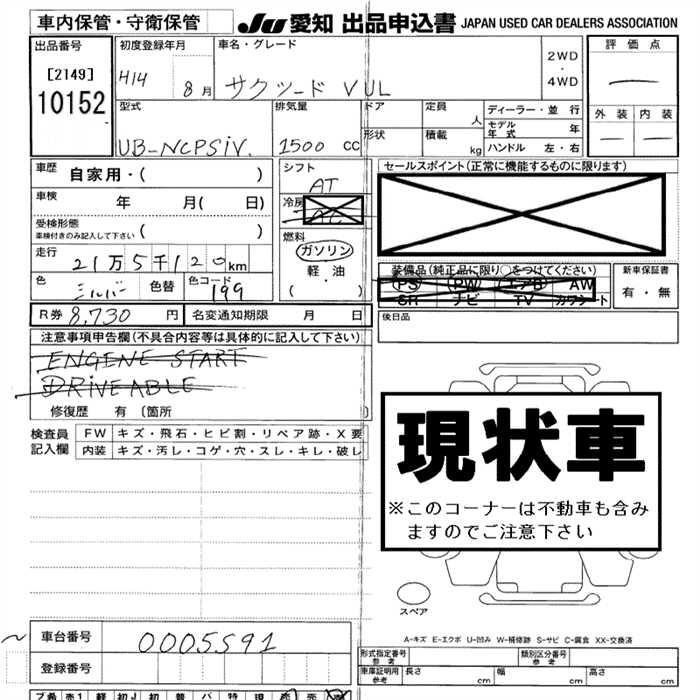 車内保管・守衛保管
JU 愛知 出品申込書 JAPAN USED CAR DEALERS ASSOCIATION
出品番号
[2149]
10152
初度登録年月
H14 8月
車名・グレード
サクシード V UL
2WD
・
4WD
評価点
外装 内装
型式
UB-NCP51V.
排気量
1500 cc
ドア
形状
定員 人
積載 kg
ディーラー・並行
モデル年式 年
ハンドル 左・右
車歴 自家用・( )
車検 年 月( 日)
受検形態
車検付きのみ記入して下さい ( )
走行 21万5千120km
色 シルバー
色替
色コード 199
シフト
AT
冷房
AC
燃料
ガソリン
軽油
( ・ )
セールスポイント(正常に機能するものに限ります)
装備品(純正品に限り○をつけてください)
PS PW エアB AW
SR ナビ TV カワシート
新車保証書
有・無
R券 8,730 円
名変通知期限 月 日
後日品
注意事項申告欄(不具合内容等は具体的に記入して下さい)
ENGENE START
DRIVEABLE
修復歴 有 〔箇所 〕
検査員
記入欄
FW キズ・飛石・ヒビ割・リペア跡・X要
内装 キズ・汚レ・コゲ・穴・スレ・キレ・破レ
現状車
※このコーナーは不動車も含み
ますのでご注意下さい
スペア
A-キズ E-エクボ U-凹み W-補修跡 S-サビ C-腐食 XX-交換済
車台番号 0005591
登録番号
形式指定番号
参考
類別区分番号
参考
車庫証明用
参考
長さ cm
幅 cm
高さ cm